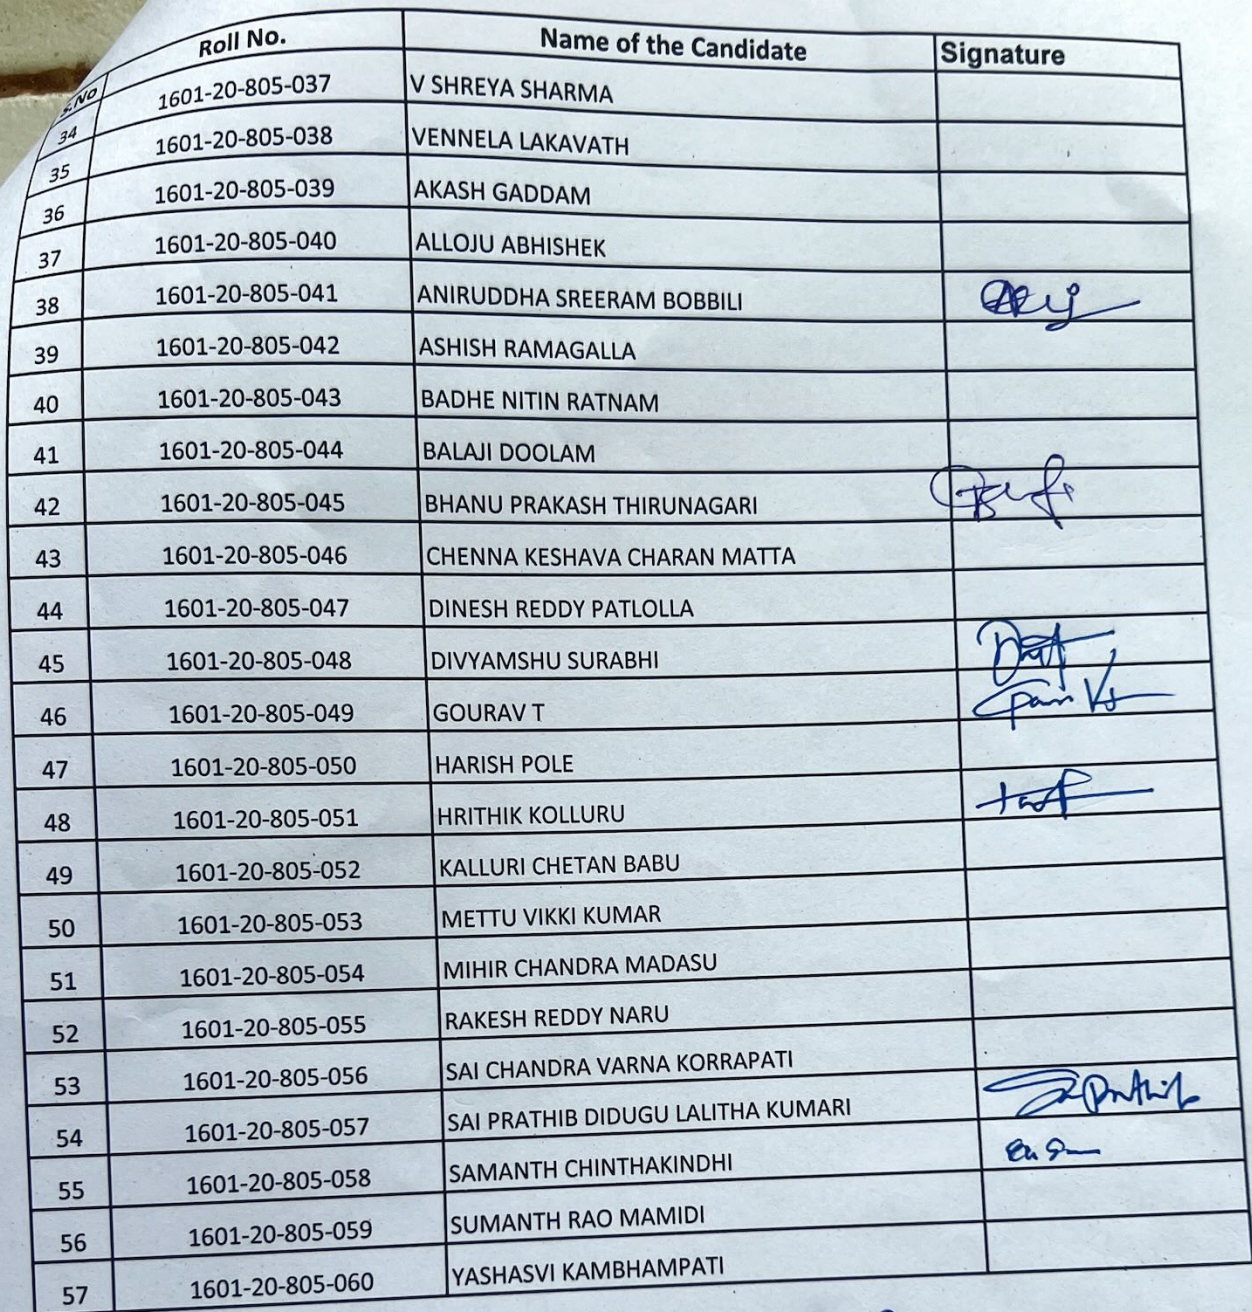 S.No Roll No. Name of the Candidate Signature
34 1601-20-805-037 V SHREYA SHARMA
35 1601-20-805-038 VENNELA LAKAVATH
36 1601-20-805-039 AKASH GADDAM
37 1601-20-805-040 ALLOJU ABHISHEK
38 1601-20-805-041 ANIRUDDHA SREERAM BOBBILI
39 1601-20-805-042 ASHISH RAMAGALLA
40 1601-20-805-043 BADHE NITIN RATNAM
41 1601-20-805-044 BALAJI DOOLAM
42 1601-20-805-045 BHANU PRAKASH THIRUNAGARI
43 1601-20-805-046 CHENNA KESHAVA CHARAN MATTA
44 1601-20-805-047 DINESH REDDY PATLOLLA
45 1601-20-805-048 DIVYAMSHU SURABHI
46 1601-20-805-049 GOURAV T
47 1601-20-805-050 HARISH POLE
48 1601-20-805-051 HRITHIK KOLLURU
49 1601-20-805-052 KALLURI CHETAN BABU
50 1601-20-805-053 METTU VIKKI KUMAR
51 1601-20-805-054 MIHIR CHANDRA MADASU
52 1601-20-805-055 RAKESH REDDY NARU
53 1601-20-805-056 SAI CHANDRA VARNA KORRAPATI
54 1601-20-805-057 SAI PRATHIB DIDUGU LALITHA KUMARI
55 1601-20-805-058 SAMANTH CHINTHAKINDHI
56 1601-20-805-059 SUMANTH RAO MAMIDI
57 1601-20-805-060 YASHASVI KAMBHAMPATI